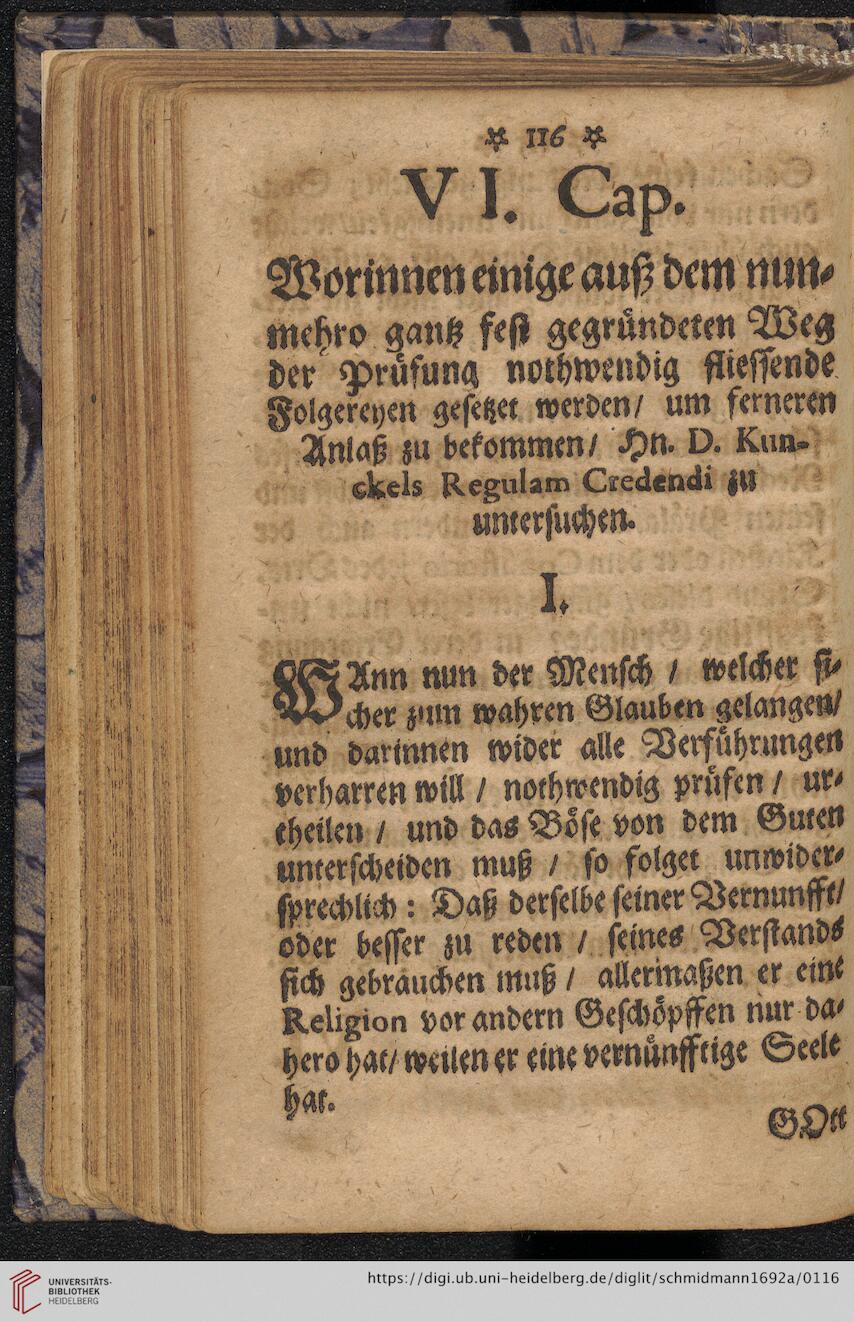 ✲ 116 ✲
VI. Cap.
Worinnen einige auß dem nun⸗
mehro gantz fest gegründeten Weg
der Prüfung nothwendig fliessende
Folgereyen gesetzet werden/ um ferneren
Anlaß zu bekommen/ Hn. D. Kun-
ckels Regulam Credendi zu
untersuchen.
I.
WAnn nun der Mensch / welcher si⸗
cher zum wahren Glauben gelangen/
und darinnen wider alle Verführungen
verharren will / nothwendig prüfen / ur⸗
theilen / und das Böse von dem Guten
unterscheiden muß / so folget unwider⸗
sprechlich: Daß derselbe seiner Vernunfft/
oder besser zu reden / seines Verstands
sich gebrauchen muß / allermaßen er eine
Religion vor andern Geschöpffen nur da⸗
hero hat/ weilen er eine vernünfftige Seele
hat.
GOtt
UNIVERSITÄTS-
BIBLIOTHEK
HEIDELBERG
https://digi.ub.uni-heidelberg.de/diglit/schmidmann1692a/0116